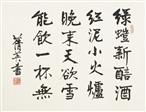 綠螘新醅酒
紅泥小火爐
晚來天欲雪
能飲一杯無
書